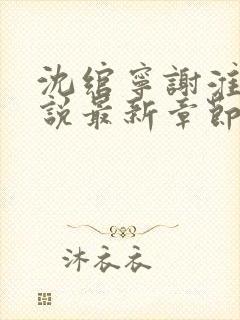 沈綰寧謝淮
說最新章節
沐衣衣